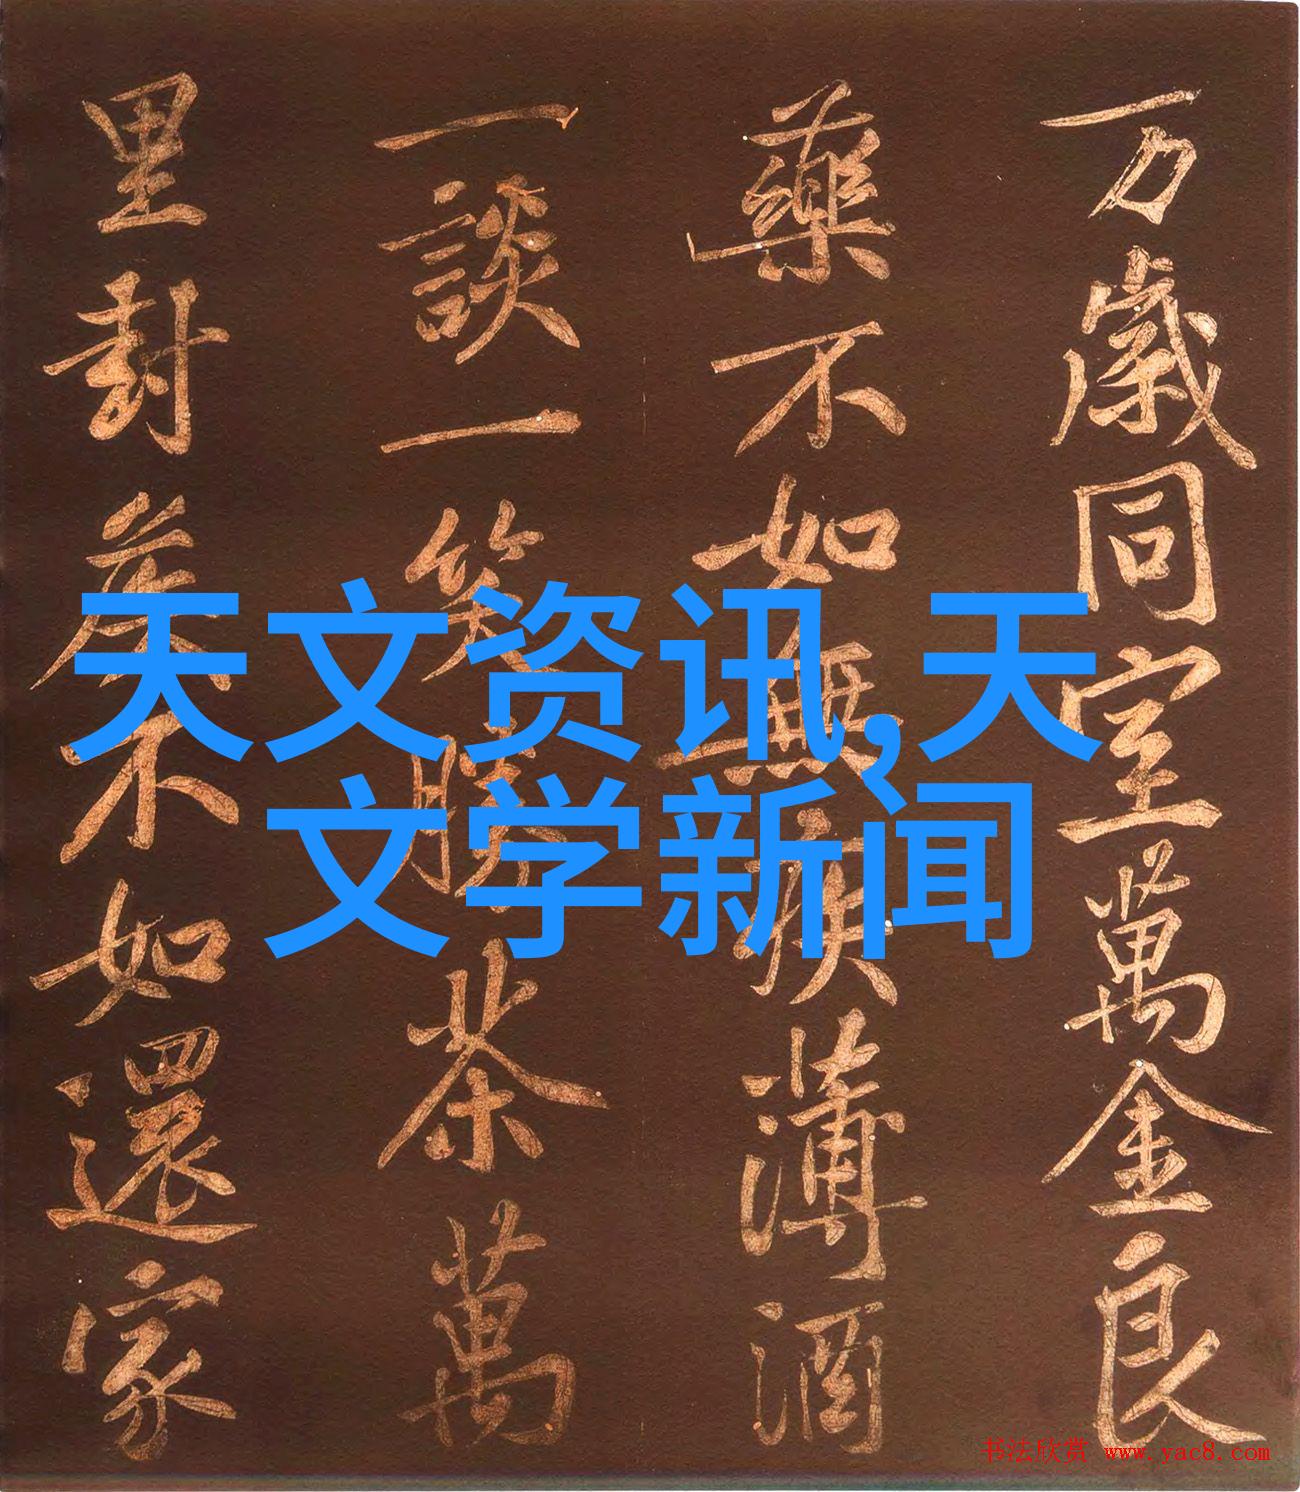 万歲同室萬金良
藥不如無疾薄酒
一談一笑勝茶萬
里封侯不如還家
天文资讯,天
文学新闻
书法欣赏 www.yac8.com